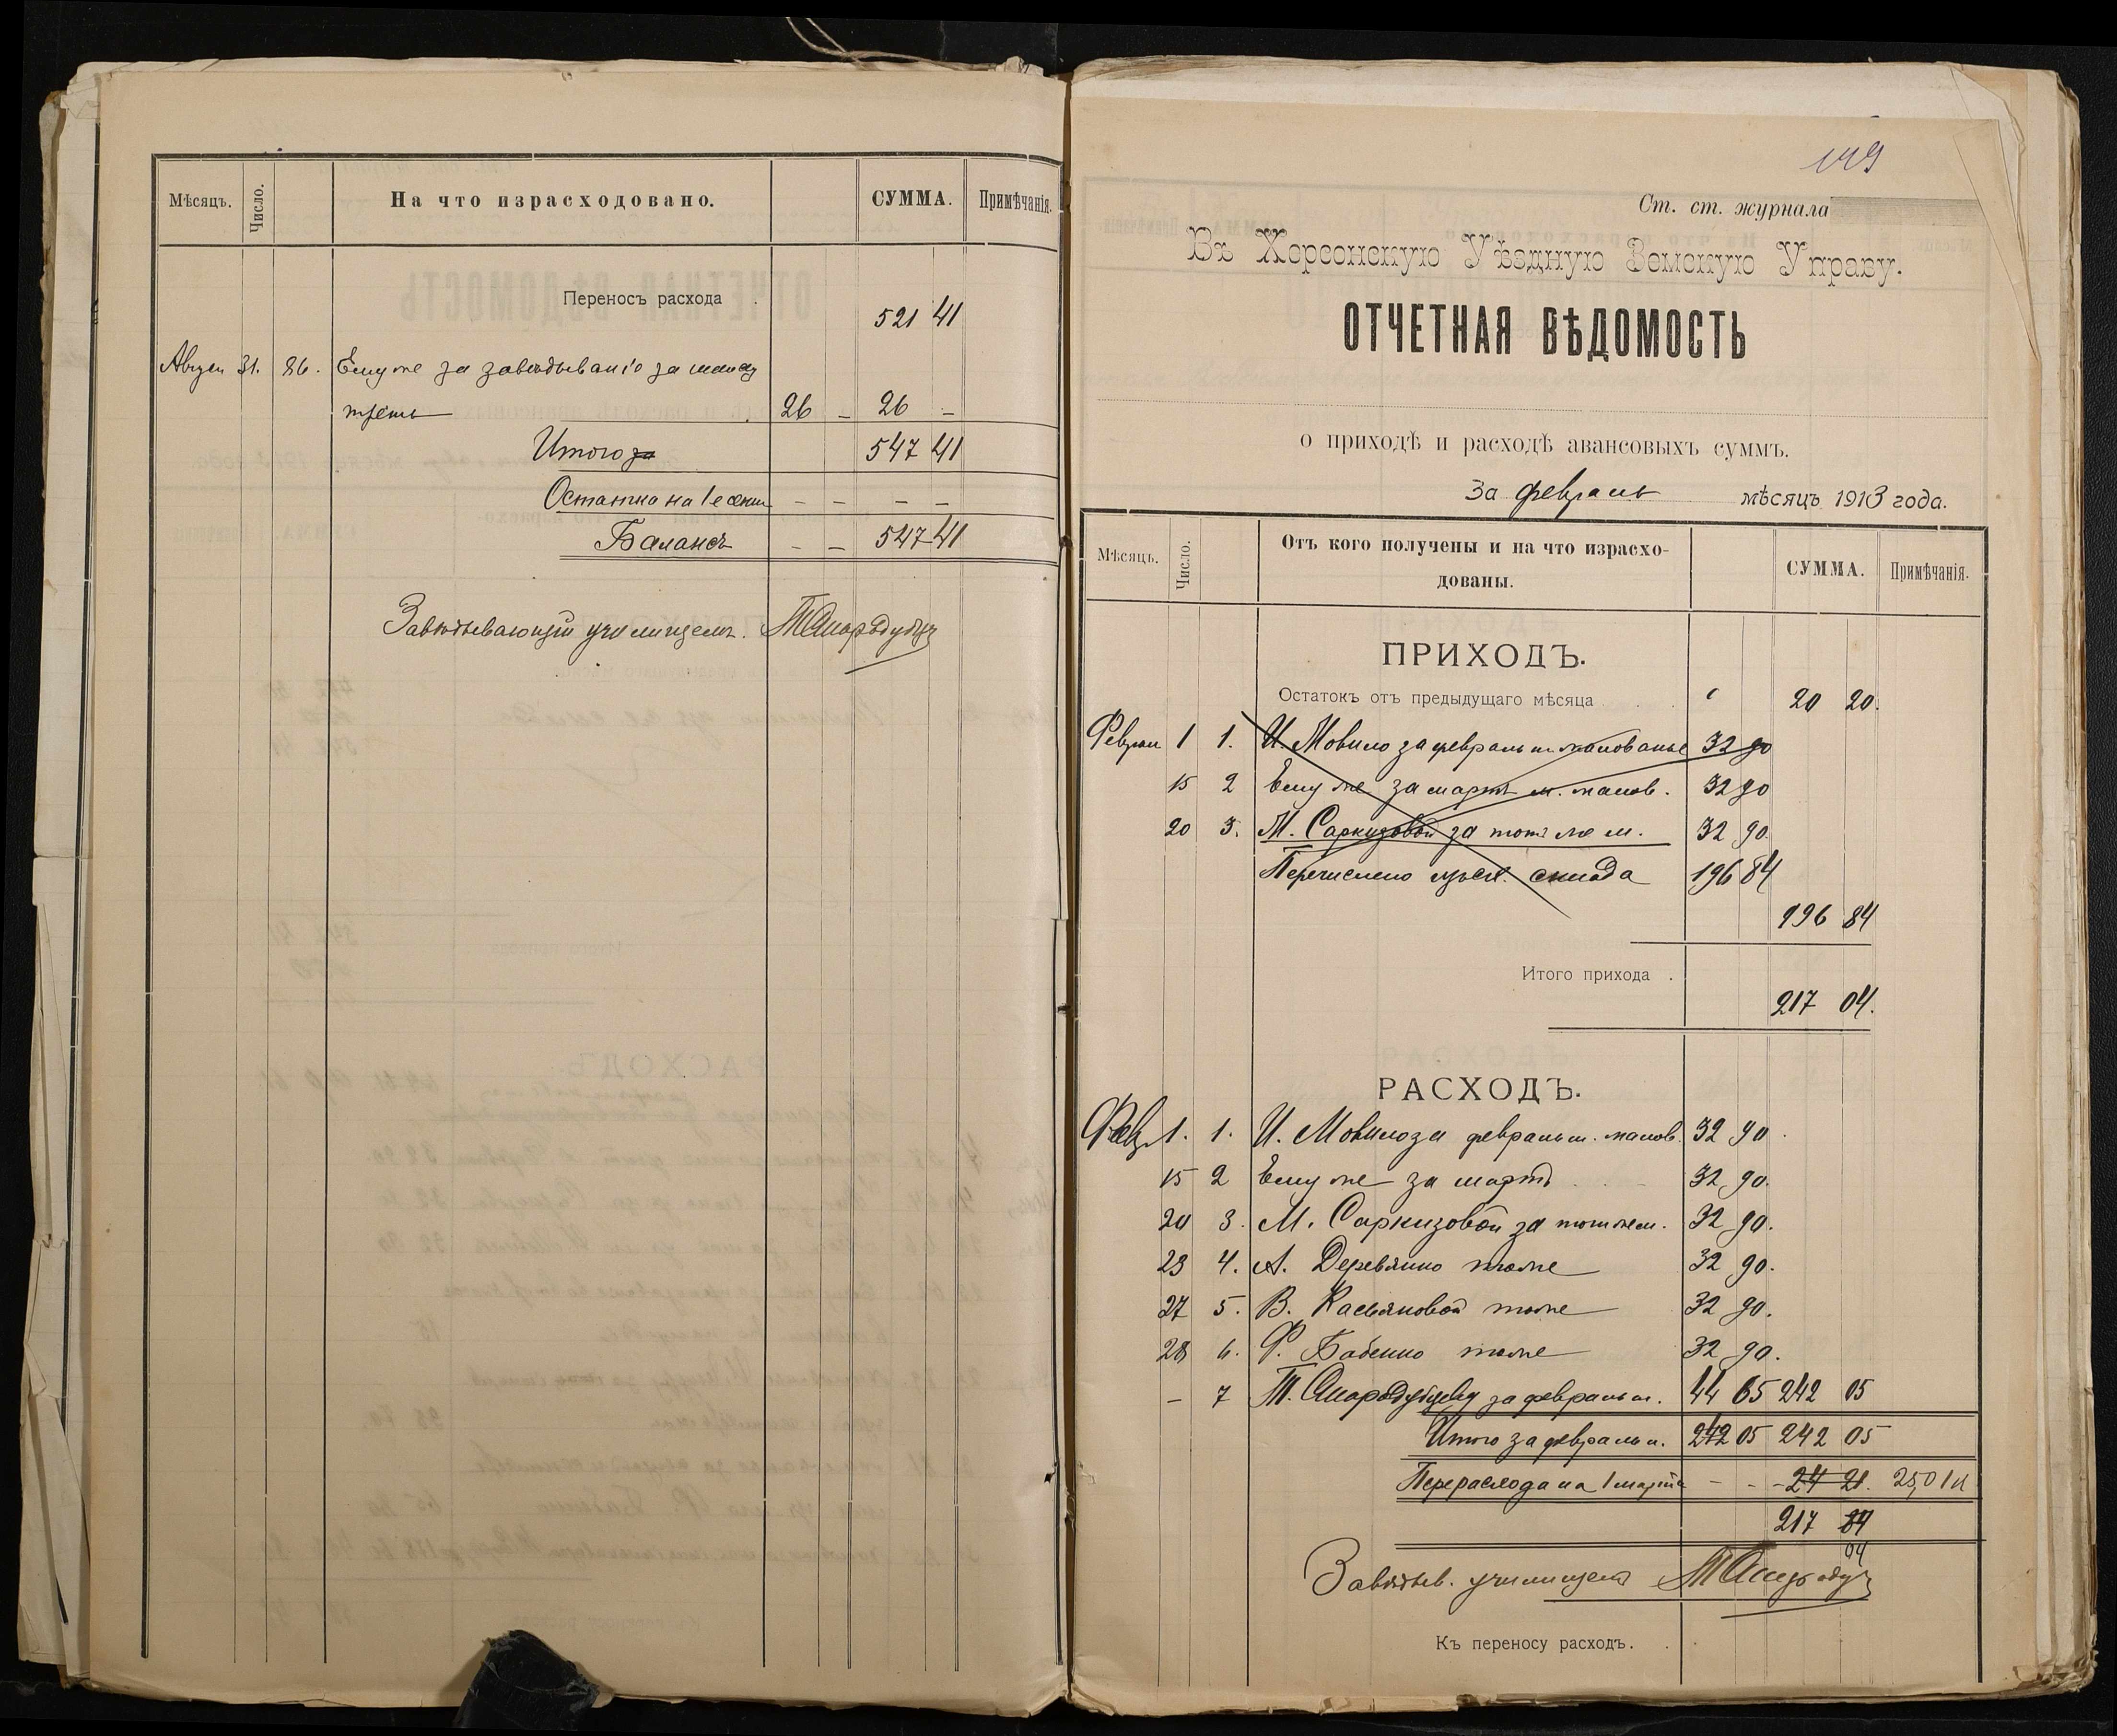 Мѣсяцъ. Число. На что израсходовано. СУММА. Примѣчанія.
Переносъ расхода . 521 41
Август 31. 26. Ему же за завѣдываніе за
треть 26 – 26 –
Итого за 547 41
Остатка на 1е сент – – – –
Балансъ – – 547 41
Завѣдывающій училищемъ.
149
Ст. ст. журнала
Въ Херсонскую Уѣздную Земскую Управу.
ОТЧЕТНАЯ ВѢДОМОСТЬ
о приходѣ и расходѣ авансовыхъ суммъ.
За февраль мѣсяцъ 1913 года.
Мѣсяцъ. Число. Отъ кого получены и на что израсхо-
дованы. СУММА. Примѣчанія.
ПРИХОДЪ.
Остатокъ отъ предыдущаго мѣсяца 20 20.
Феврал 1 1. И. Мовило за февраль м. жалованье 32 90
15 2 Ему же за мартъ м. жалов. 32 90
20 3. М. Саркизовой за тотъ же м. 32 90.
Перечислено склада 196 84
196 84
Итого прихода .
217 04.
РАСХОДЪ.
Февр 1. 1. И. Мовило за февраль м. жалов. 32 90
15 2 Ему же за мартъ 32 90.
20 3. М. Саркизовой за тотъ же м. 32 90.
23 4. А. Деревянко тоже 32 90.
27 5. В. Касьяновой тоже 32 90.
28 6. Ф. Бабенко тоже 32 90.
– 7 Т. за февраль м. 44 65 242 05
Итого за февраль м. 242 05 242 05
Перерасхода на 1 марта – - - 24 21. 25,01 к
217 84
04
Завѣдыв. училищемъ
Къ переносу расходъ.